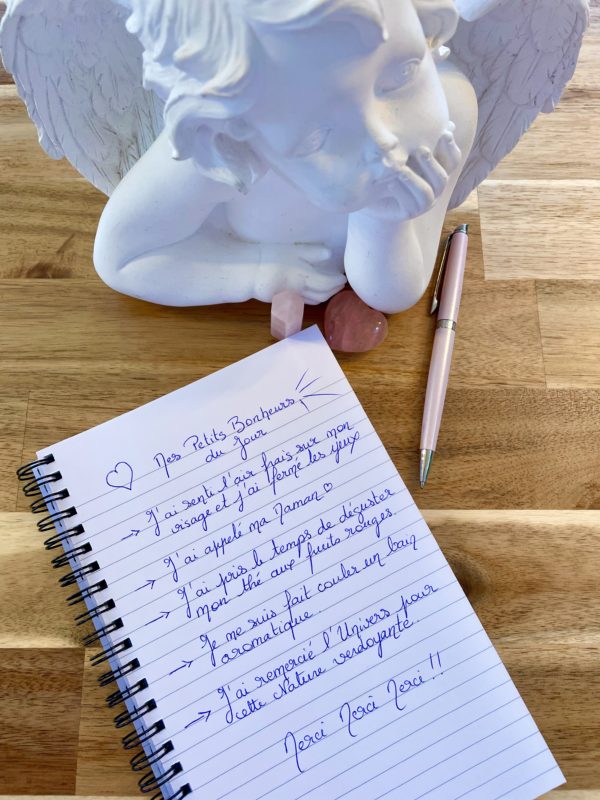 ♡ Mes Petits Bonheurs
du Jour
→ J'ai senti l'air frais sur mon
visage et j'ai fermé les yeux
→ J'ai appelé ma Maman ♡
→ J'ai pris le temps de déguster
mon thé aux fruits rouges.
→ Je me suis fait couler un bain
aromatique.
→ J'ai remercié l'Univers pour
cette Nature verdoyante.
Merci Merci Merci !!